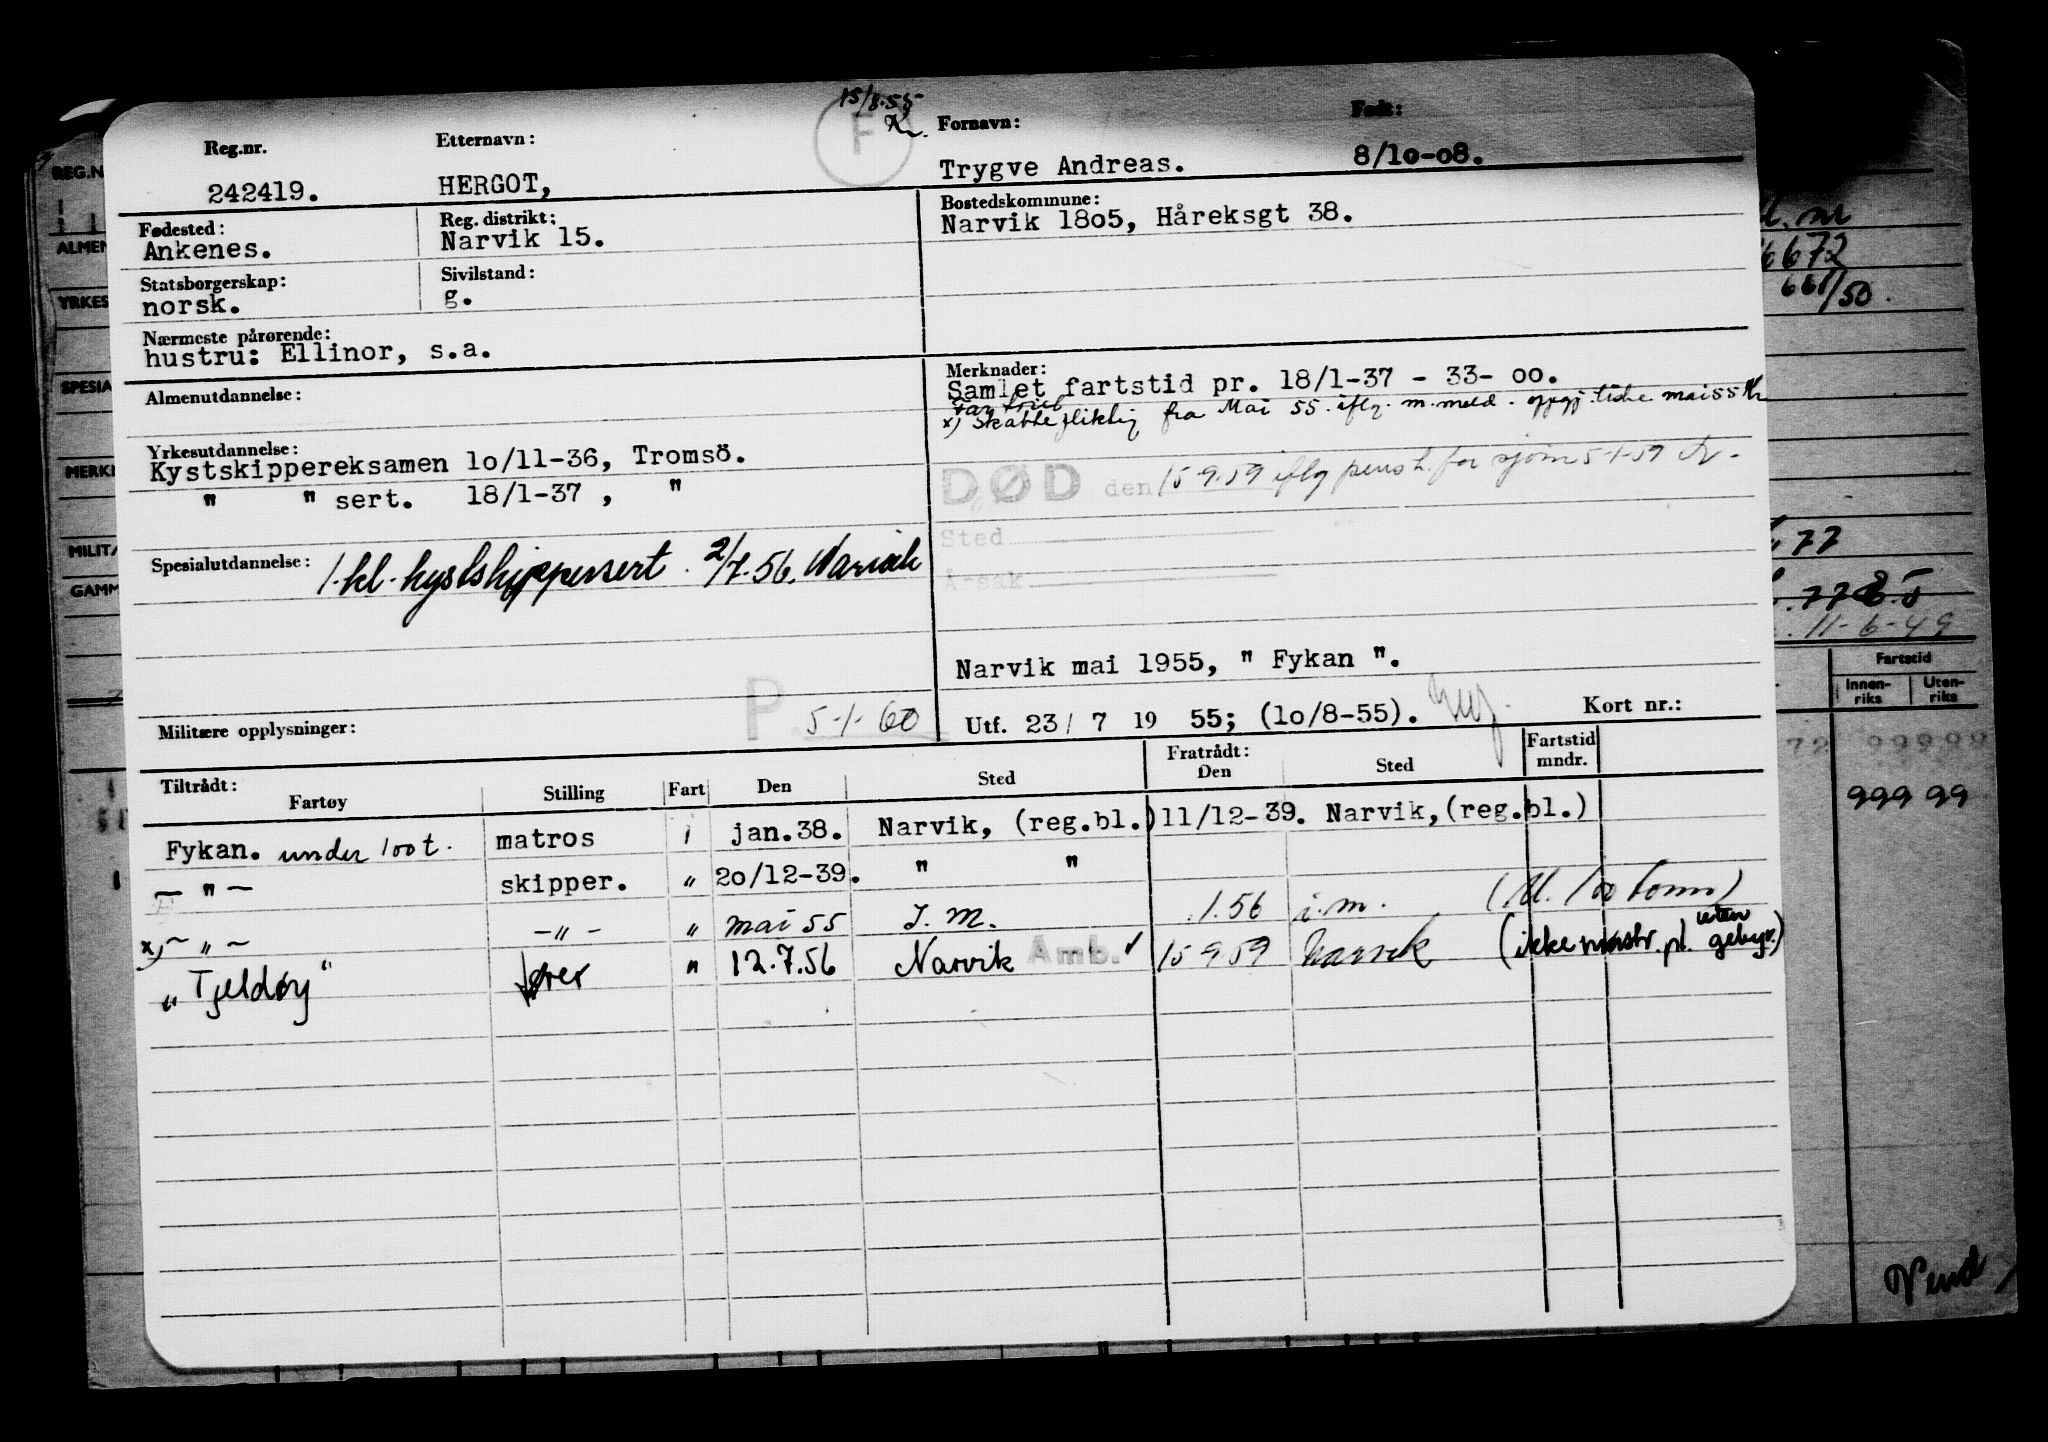 15/8.55
F
Reg.nr. Etternavn: Fornavn: Født:
242419. HERGOT, Trygve Andreas. 8/10-08.
Fødested: Reg. distrikt: Bostedskommune:
Ankenes. Narvik 15. Narvik 1805, Håreksgt 38.
Statsborgerskap: Sivilstand:
norsk. g.
Nærmeste pårørende:
hustru: Ellinor, s.a.
Almenutdannelse:
Merknader:
Samlet fartstid pr. 18/1-37 - 33- oo.
x) Skattepliktig fra Mai 55. iflg. m.meld. oppgj. liste mai 55
Yrkesutdannelse:
Kystskippereksamen 1o/11-36, Tromsö.
" " sert. 18/1-37 , "
DØD den 15-9.59 iflg pens.t. for sjøm 5-1-59
Sted
Årsak
Spesialutdannelse: 1.kl. kystskippersert. 2/7.56. Narvik
Narvik mai 1955, " Fykan ".
P. 5-1-60
Militære opplysninger:
Utf. 23/ 7 19 55; (1o/8-55). Kort nr.:
Tiltrådt: Fratrådt: Fartstid
Fartøy Stilling Fart Den Sted Den Sted mndr.
Fykan. under 100 t. matros i jan.38. Narvik, (reg.bl.) 11/12-39. Narvik, (reg.bl.)
— " — skipper. " 2o/12-39. " "
x) — " — — " — " mai 55 I.M. .1.56 i.m. (M. 100 tonn)
"Tjeldøy" fører " 12.7.56 Narvik Amb. ✓ 15 9 59 Narvik (ikke mønstr. pl. uten gebyr.)
REG.N
ALMEN
YRKES
SPESIA
MERK
MILIT
GAMM
nr
672
661/50.
77
77 8.5
11-6-49
Fartstid
Innen-riks Uten-riks
72 99999
999 99
Vend